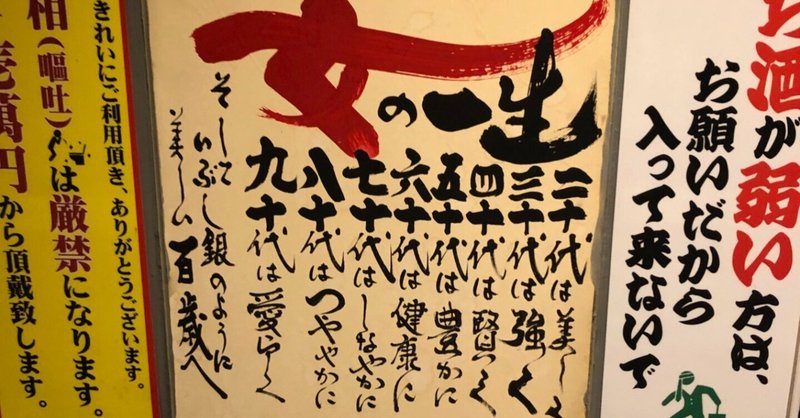 お酒が弱い方は、
お願いだから
入って来ないで
女の一生
二十代は美しく
三十代は強く
四十代は賢く
五十代は豊かに
六十代は健康に
七十代はしなやかに
八十代はつややかに
九十代は愛らしく
そして
いぶし銀のように
美しい百歳へ
きれいにご利用頂き、ありがとうございます。
相(嘔吐)
は厳禁になります。
壱萬円から頂戴致します。